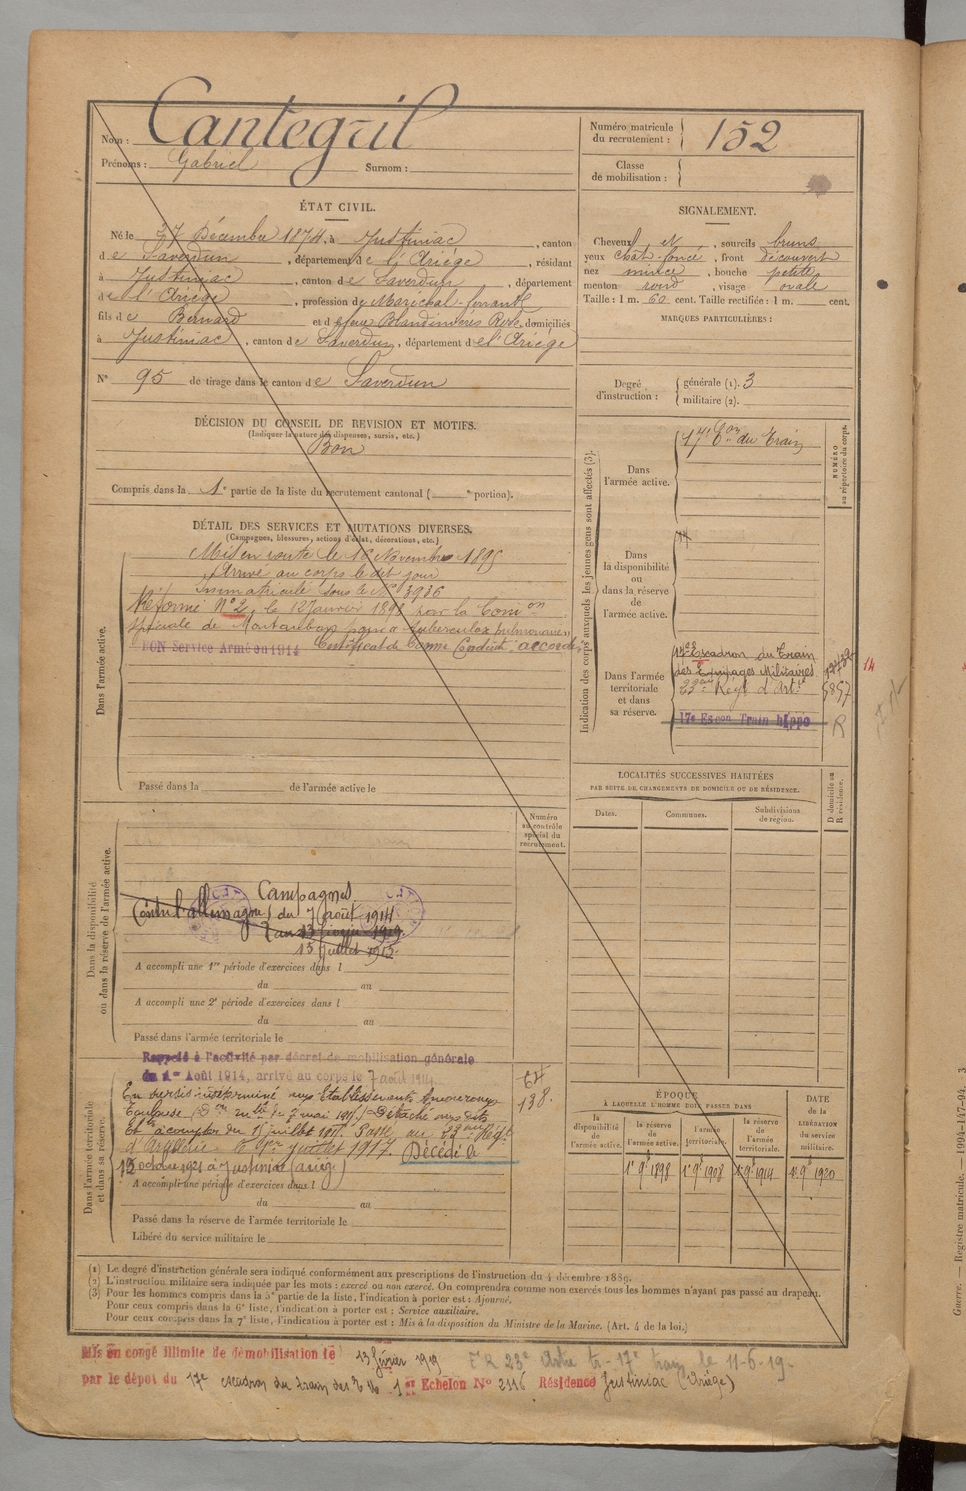 Nom : Cantegril
Prénoms : Gabriel Surnom :
Numéro matricule du recrutement : 152
Classe de mobilisation :
ÉTAT CIVIL.
Né le 27 Décembre 1874, à Justiniac, canton
de Saverdun, département de l'Ariège, résidant
à Justiniac, canton de Saverdun, département
de l'Ariège, profession de Maréchal-ferrant
fils de Bernard et de feue Blandinières Rose, domiciliés
à Justiniac, canton de Saverdun, département de l'Ariège
N° 95 de tirage dans le canton de Saverdun
SIGNALEMENT.
Cheveux et, sourcils bruns
yeux chat. foncé, front découvert
nez mince, bouche petite
menton rond, visage ovale
Taille : 1 m. 60 cent. Taille rectifiée : 1 m. cent.
MARQUES PARTICULIÈRES :
Degré d'instruction : générale (1). 3
militaire (2).
DÉCISION DU CONSEIL DE REVISION ET MOTIFS.
(Indiquer la nature des dispenses, sursis, etc.)
Bon
Compris dans la 1e partie de la liste du recrutement cantonal ( e portion).
DÉTAIL DES SERVICES ET MUTATIONS DIVERSES.
(Campagnes, blessures, actions d'éclat, décorations, etc.)
Dans l'armée active.
Mis en route le 16 Novembre 1895
Arrivé au corps le dit jour
Immatriculé sous le N° 3936
Réformé N° 2, le 12 Janvier 1898 par la Comion
spéciale de Montauban pour " tuberculose pulmonaire "
BON Service Armé en 1914 Certificat de bonne Conduite : accordé
Passé dans la de l'armée active le
Indication des corps auxquels les jeunes gens sont affectés (3).
NUMÉRO au répertoire du corps.
Dans l'armée active.
17e Eon du Train
Dans la disponibilité ou dans la réserve de l'armée active.
Dans l'armée territoriale et dans sa réserve.
17e Escadron du Train
des Equipages Militaires
23me Regt d'Artie
17e Escon Train hippo
14
R
LOCALITÉS SUCCESSIVES HABITÉES
PAR SUITE DE CHANGEMENTS DE DOMICILE OU DE RÉSIDENCE.
Dates. Communes. Subdivisions de région.
D domicile ou R résidence.
Numéro au contrôle spécial du recrutement.
Dans la disponibilité ou dans la réserve de l'armée active.
Campagnes
Contre l'allemagne du 7 août 1914
au 13 février 1919
15 Juillet 1915
A accompli une 1re période d'exercices dans l
du au
A accompli une 2e période d'exercices dans l
du au
Passé dans l'armée territoriale le
Rappelé à l'activité par décret de mobilisation générale
du 1er Août 1914, arrivé au corps le 7 août 1914.
Dans l'armée territoriale et dans sa réserve.
En sursis indéterminé aux Etablissements
Toulouse Détaché aux dits
Ets à compter du 15 juillet 1915. Passé au 23me Régt
d'Artillerie le 1er juillet 1917. Décédé le
octobre 1921 à Justiniac (ariège)
A accompli une période d'exercices dans l
du au
Passé dans la réserve de l'armée territoriale le
Libéré du service militaire le
64
138.
ÉPOQUE
À LAQUELLE L'HOMME DOIT PASSER DANS
la disponibilité de l'armée active.
la réserve de l'armée active.
l'armée territoriale.
la réserve de l'armée territoriale.
DATE de la LIBÉRATION du service militaire.
1er 9bre 1898 1er 9bre 1908 1er 9bre 1914 1er 9bre 1920
(1) Le degré d'instruction générale sera indiqué conformément aux prescriptions de l'instruction du 4 décembre 1889.
(2) L'instruction militaire sera indiquée par les mots : exercé ou non exercé. On comprendra comme non exercés tous les hommes n'ayant pas passé au drapeau.
(3) Pour les hommes compris dans la 5e partie de la liste, l'indication à porter est : Ajourné.
Pour ceux compris dans la 6e liste, l'indication à porter est : Service auxiliaire.
Pour ceux compris dans la 7e liste, l'indication à porter est : Mis à la disposition du Ministre de la Marine. (Art. 4 de la loi.)
Mis en congé illimité de démobilisation le 13 février 1919
23e Artie 17e train le 11-6-19.
par le dépôt du 17e escadron du train des E. M. 1er Echelon N° 2116 Résidence Justiniac (Ariège)
Guerre. — Registre matricule. — 1994-147-94. 3